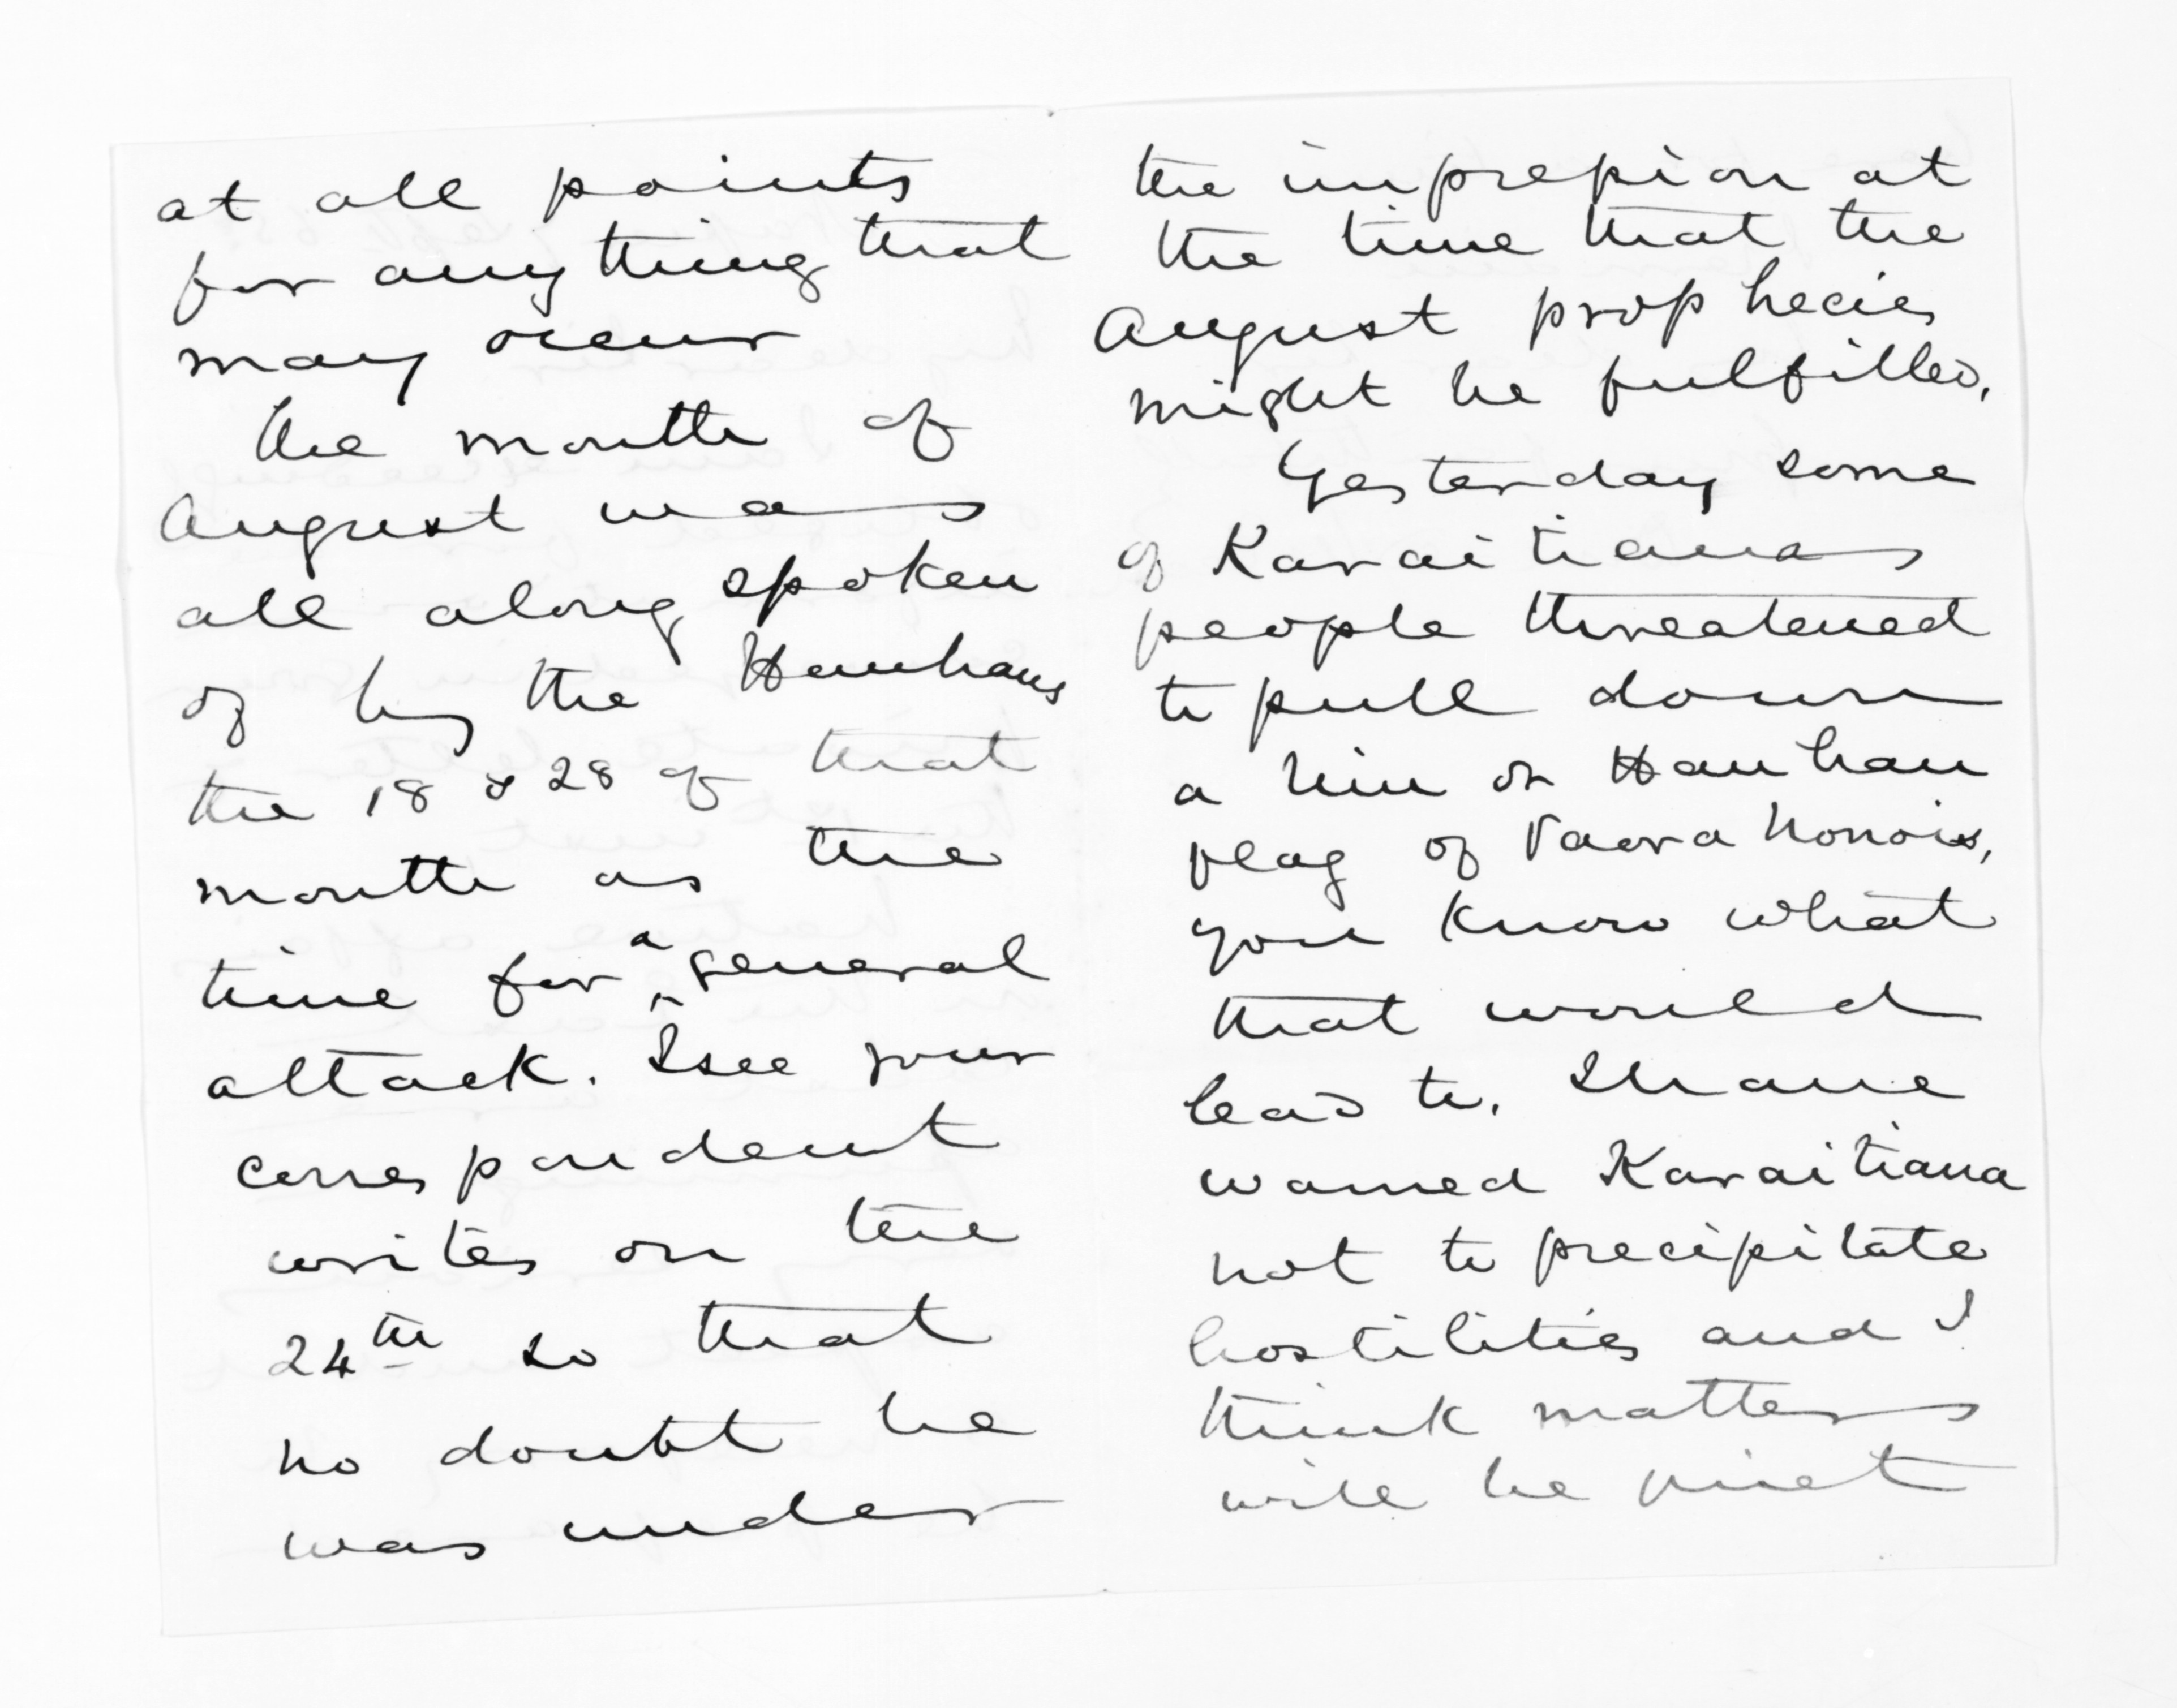 at all points
for anything that
may occur
the month of
August was
all along spoken
of by the Hauhaus
the 18 & 28 of that
month as the
time for a general
attack. I see your
correspondent
writes on the
24th so that
no doubt he
was under
the impression at
the time that the
August prophecies
might be fulfilled,
Yesterday some
of Karaitianas
people threatened
to pull down
a niu or Hauhau
flag of Paora
you know what
that would
lead to. I have
warned Karaitiana
not to precipitate
hostilities and I
think matters
will be quiet